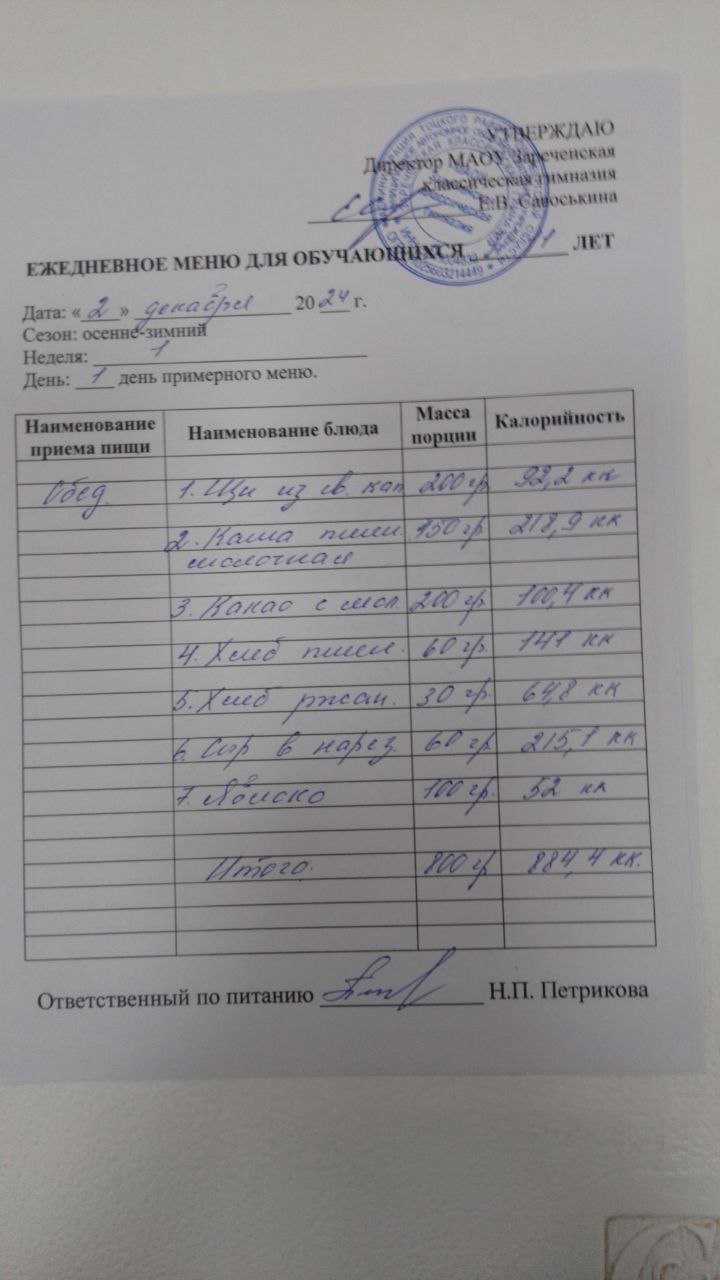 УТВЕРЖДАЮ
Директор МАОУ Зареченская
классическая гимназия
Е.В. Савоськина
ЕЖЕДНЕВНОЕ МЕНЮ ДЛЯ ОБУЧАЮЩИХСЯ ЛЕТ
Дата: «2» декабря 2024 г.
Сезон: осенне-зимний
Неделя: 1
День: 1 день примерного меню.
Наименование приема пищи Наименование блюда Масса порции Калорийность
Обед 1. Щи из св. кап 200 гр. 92,2 кк
2. Каша пшен. 150 гр. 218,9 кк
молочная
3. Какао с мол. 200 гр. 100,4 кк
4. Хлеб пшен. 60 гр. 141 кк
5. Хлеб ржан. 30 гр. 64,8 кк
6. Сыр в нарез. 60 гр 215,1 кк
7. Яблоко 100 гр. 52 кк
Итого. 800 гр 884,4 кк.
Ответственный по питанию Н.П. Петрикова